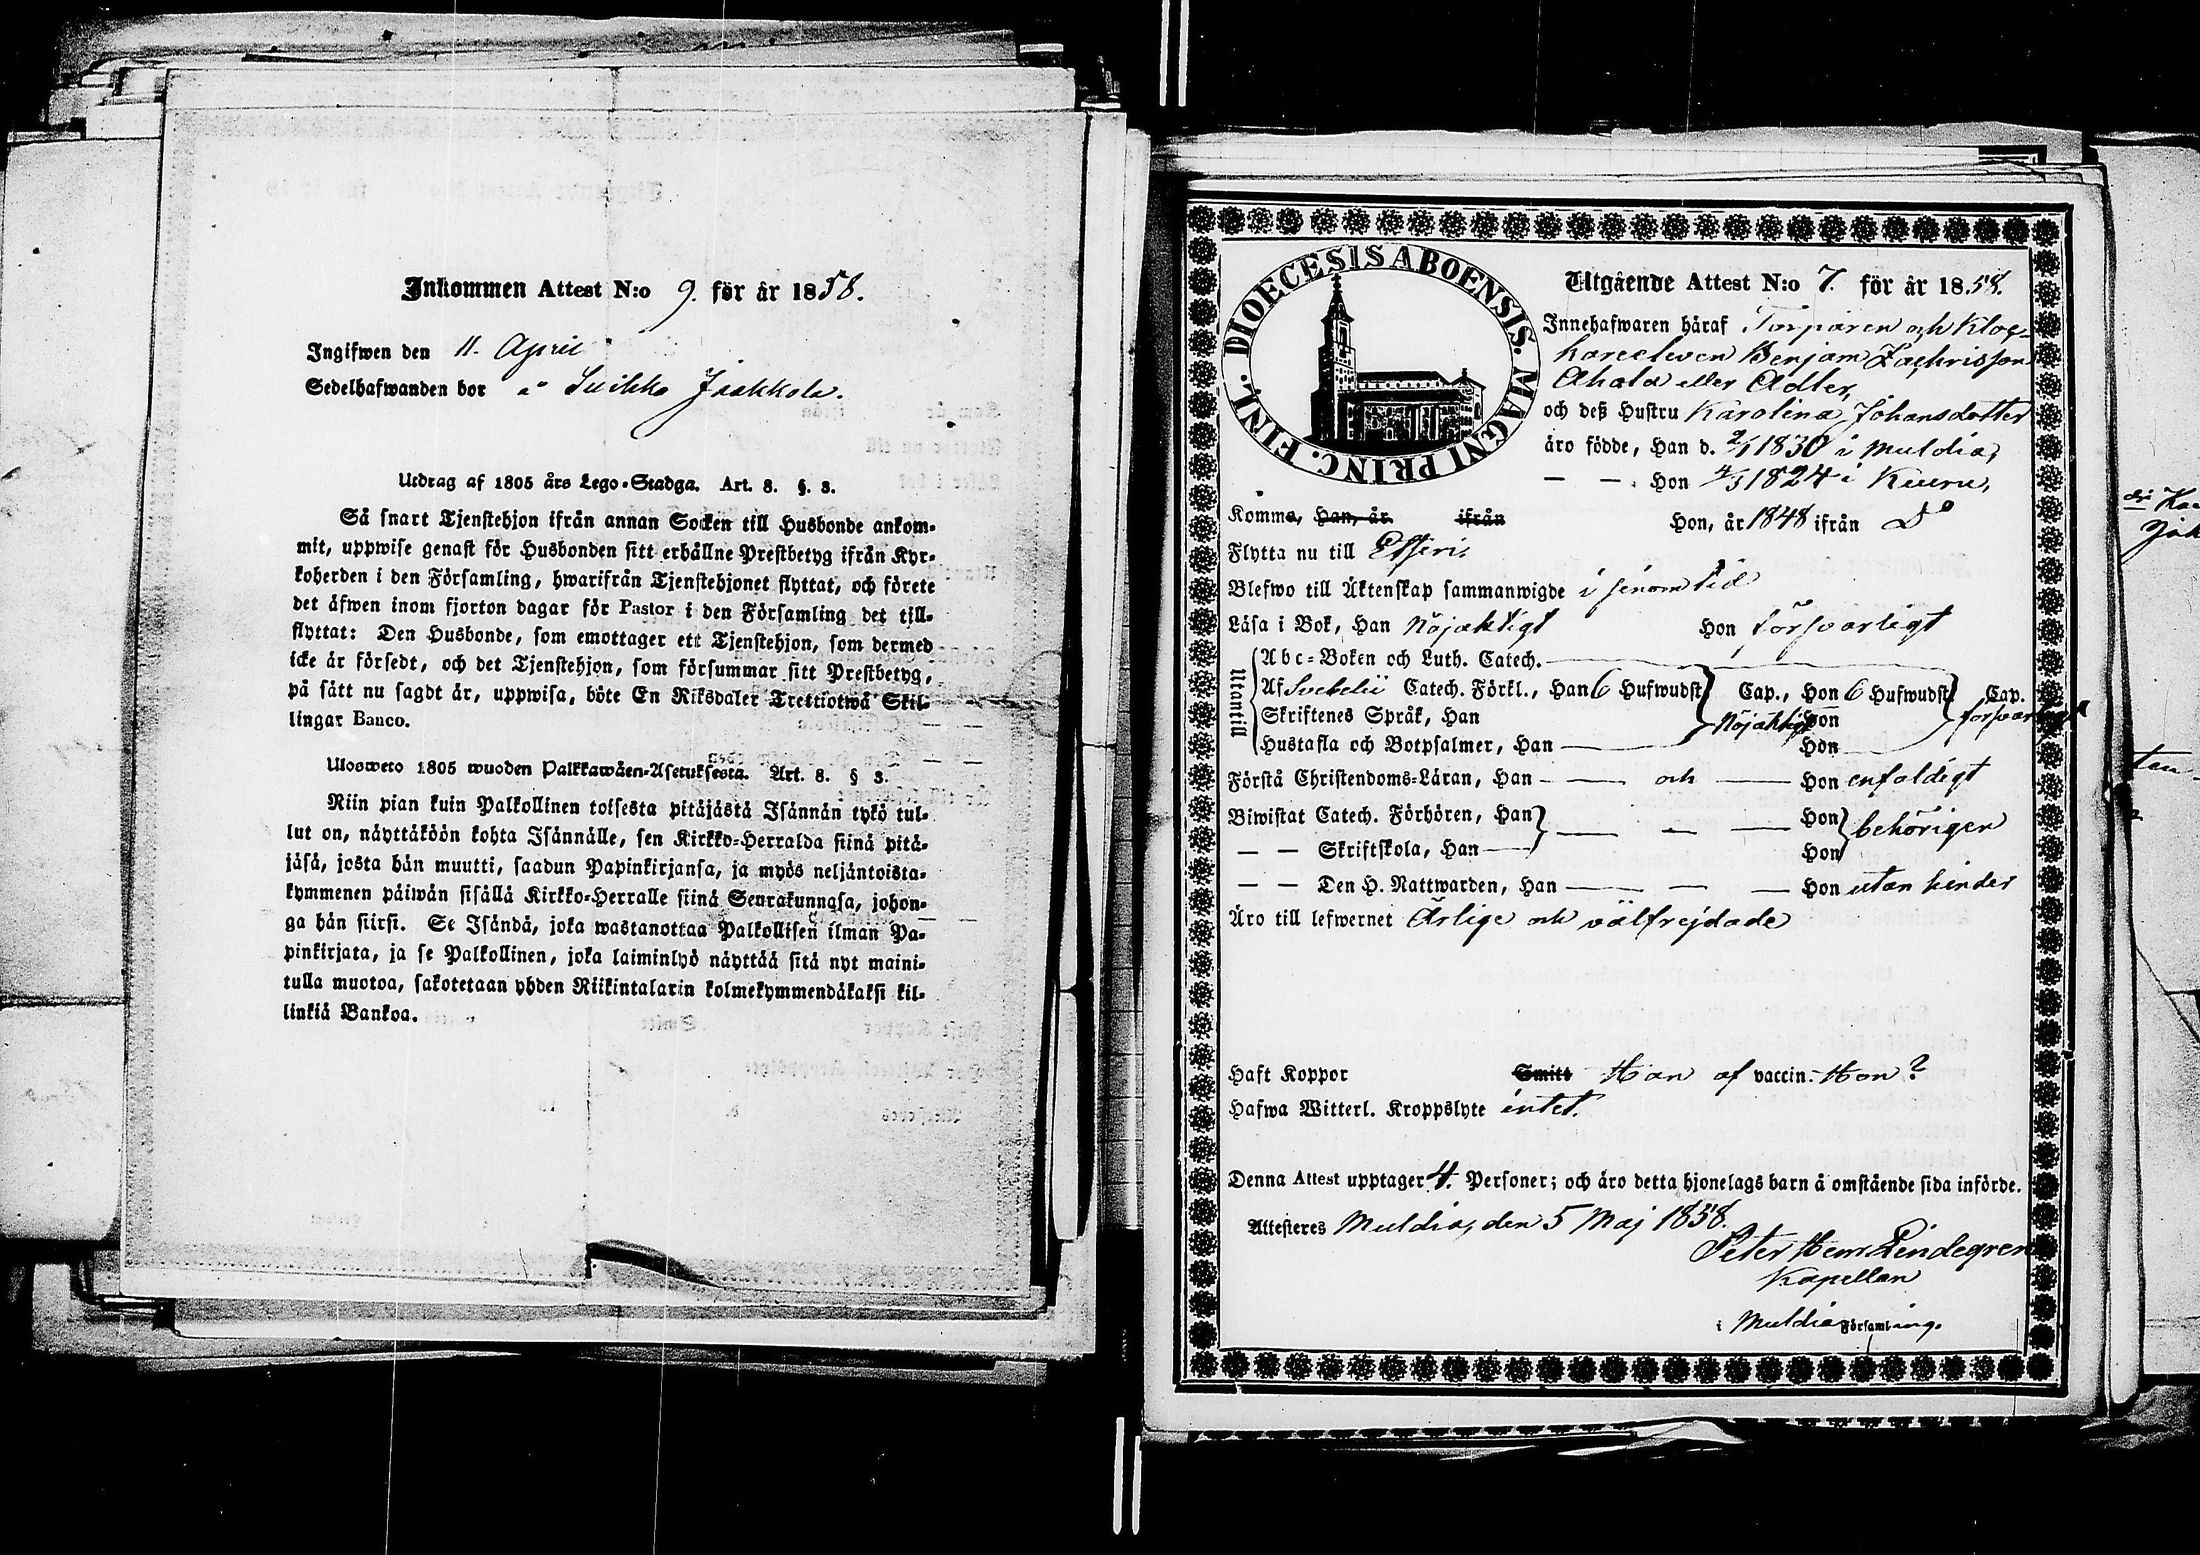 Inkommen Attest N:o 9. för år 1858.
Ingifwen den 11. April
Sedelhafwanden bor å Suikko Jaakkola.
Utdrag af 1805 års Lego-Stadga. Art. 8. §. 3.
Så snart Tjenstehjon ifrån annan Socken till Husbonde ankom-
mit, uppwise genast för Husbonden sitt erhållne Prestbetyg ifrån Kyr-
koherden i den Församling, hwarifrån Tjenstehjonet flyttat, och förete
det äfwen inom fjorton dagar för Pastor i den Församling det till-
flyttat: Den Husbonde, som emottager ett Tjenstehjon, som dermed
icke är försedt, och det Tjenstehjon, som försummar sitt Prestbetyg,
på sätt nu sagdt är, uppwisa, böte En Riksdaler Trettiotwå Skil-
lingar Banco.
Ulosweto 1805 wuoden Palkkawäen-Asetuksesta. Art. 8. § 3.
Niin pian kuin Palkollinen toisesta pitäjästä Isännän tykö tul-
lut on, näyttäköön kohta Isännälle, sen Kirkko-Herralda siinä pitä-
jäsä, josta hän muutti, saadun Papinkirjansa, ja myös neljäntoista-
kymmenen päiwän sisällä Kirkko-Herralle siinä Seurakunnasa, johon-
ga hän siirsi. Se Isändä, joka wastanottaa Palkollisen ilman Pa-
pinkirjata, ja se Palkollinen, joka laiminlyö näyttää sitä nyt maini-
tulla muotoa, sakotetaan yhden Riikintalarin kolmekymmendäkaksi kil-
linkiä Bankoa.
DIOECESIS ABOENSIS. MAGNI PRINC. FINL.
Utgående Attest N:o 7. för år 1858.
Innehafwaren häraf Torparen och Kloc-
kareeleven Benjam Zachrisson
Ahola eller Adler,
och deß Hustru Karolina Johansdotter
äro födde, Han d. 2/1 1830 i Muldia,
— — . Hon 4/3 1824 i Keuru,
Komma, Han, år ifrån Hon, år 1848 ifrån Do
Flytta nu till Etseri,
Blefwo till Äktenskap sammanwigde i sinom tid
Läsa i Bok, Han Nöjaktigt Hon försvarligt
Utantill
Abc-Boken och Luth. Catech.
Af Svebelii Catech. Förkl., Han 6 Hufwudst Cap., Hon 6 Hufwudst Cap.
Skriftenes Språk, Han Nöjaktigt Hon försvarligt
Hustafla och Botpsalmer, Han — Hon —
Förstå Christendoms-Läran, Han — och — Hon enfaldigt
Biwistat Catech. Förhören, Han — — — Hon behörigen
— — Skriftskola, Han — Hon
— — Den H. Nattwarden, Han — — — Hon utan hinder
Äro till lefwernet Ärlige och välfrejdade
Haft Koppor Smitt Han af vaccin. Hon?
Hafwa Witterl. Kroppslyte intet.
Denna Attest upptager 4. Personer; och äro detta hjonelags barn å omstående sida införde.
Attesteres Muldia, den 5 Maj 1858.
Peter Henr Lindegren
Kapellan
i Muldia Församling.